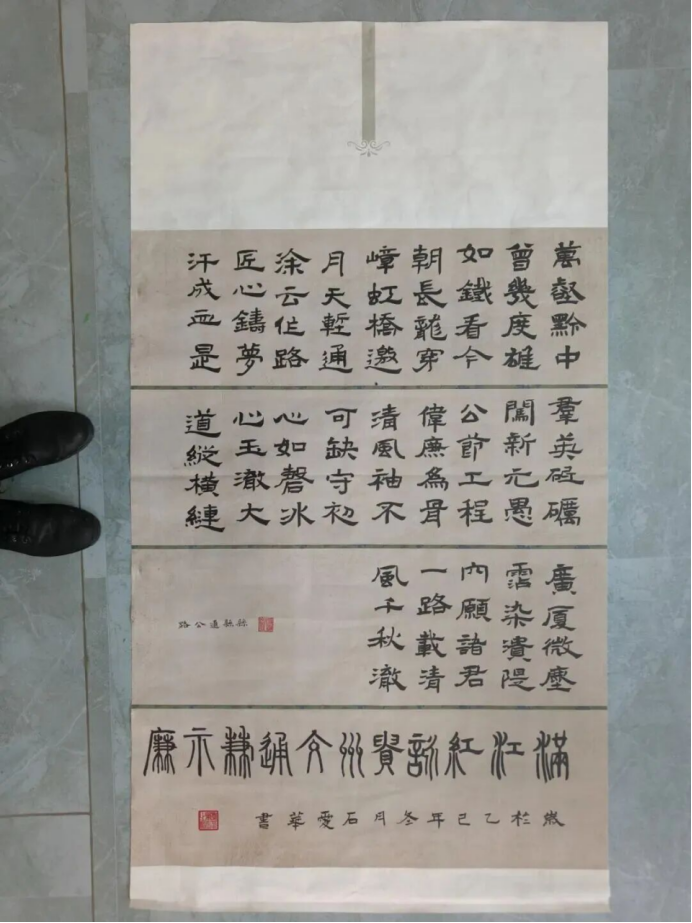 萬壑黔中
曾幾度雄
如鐵看今
朝長龍穿
嶂虹橋邀
月天塹通
涂云作路
匠心鑄夢
汗成血是
羣英砥礪
闖新元愚
公節工程
偉廉為骨
清風袖不
可缺守初
心如磬冰
心玉澈大
道縱橫縺
廣厦微塵
霑染潰隄
穴願諸君
一路載清
風千秋澈
公路
滿江紅詠貴州交通兼示廉
歲於乙巳年叁月石愛華書